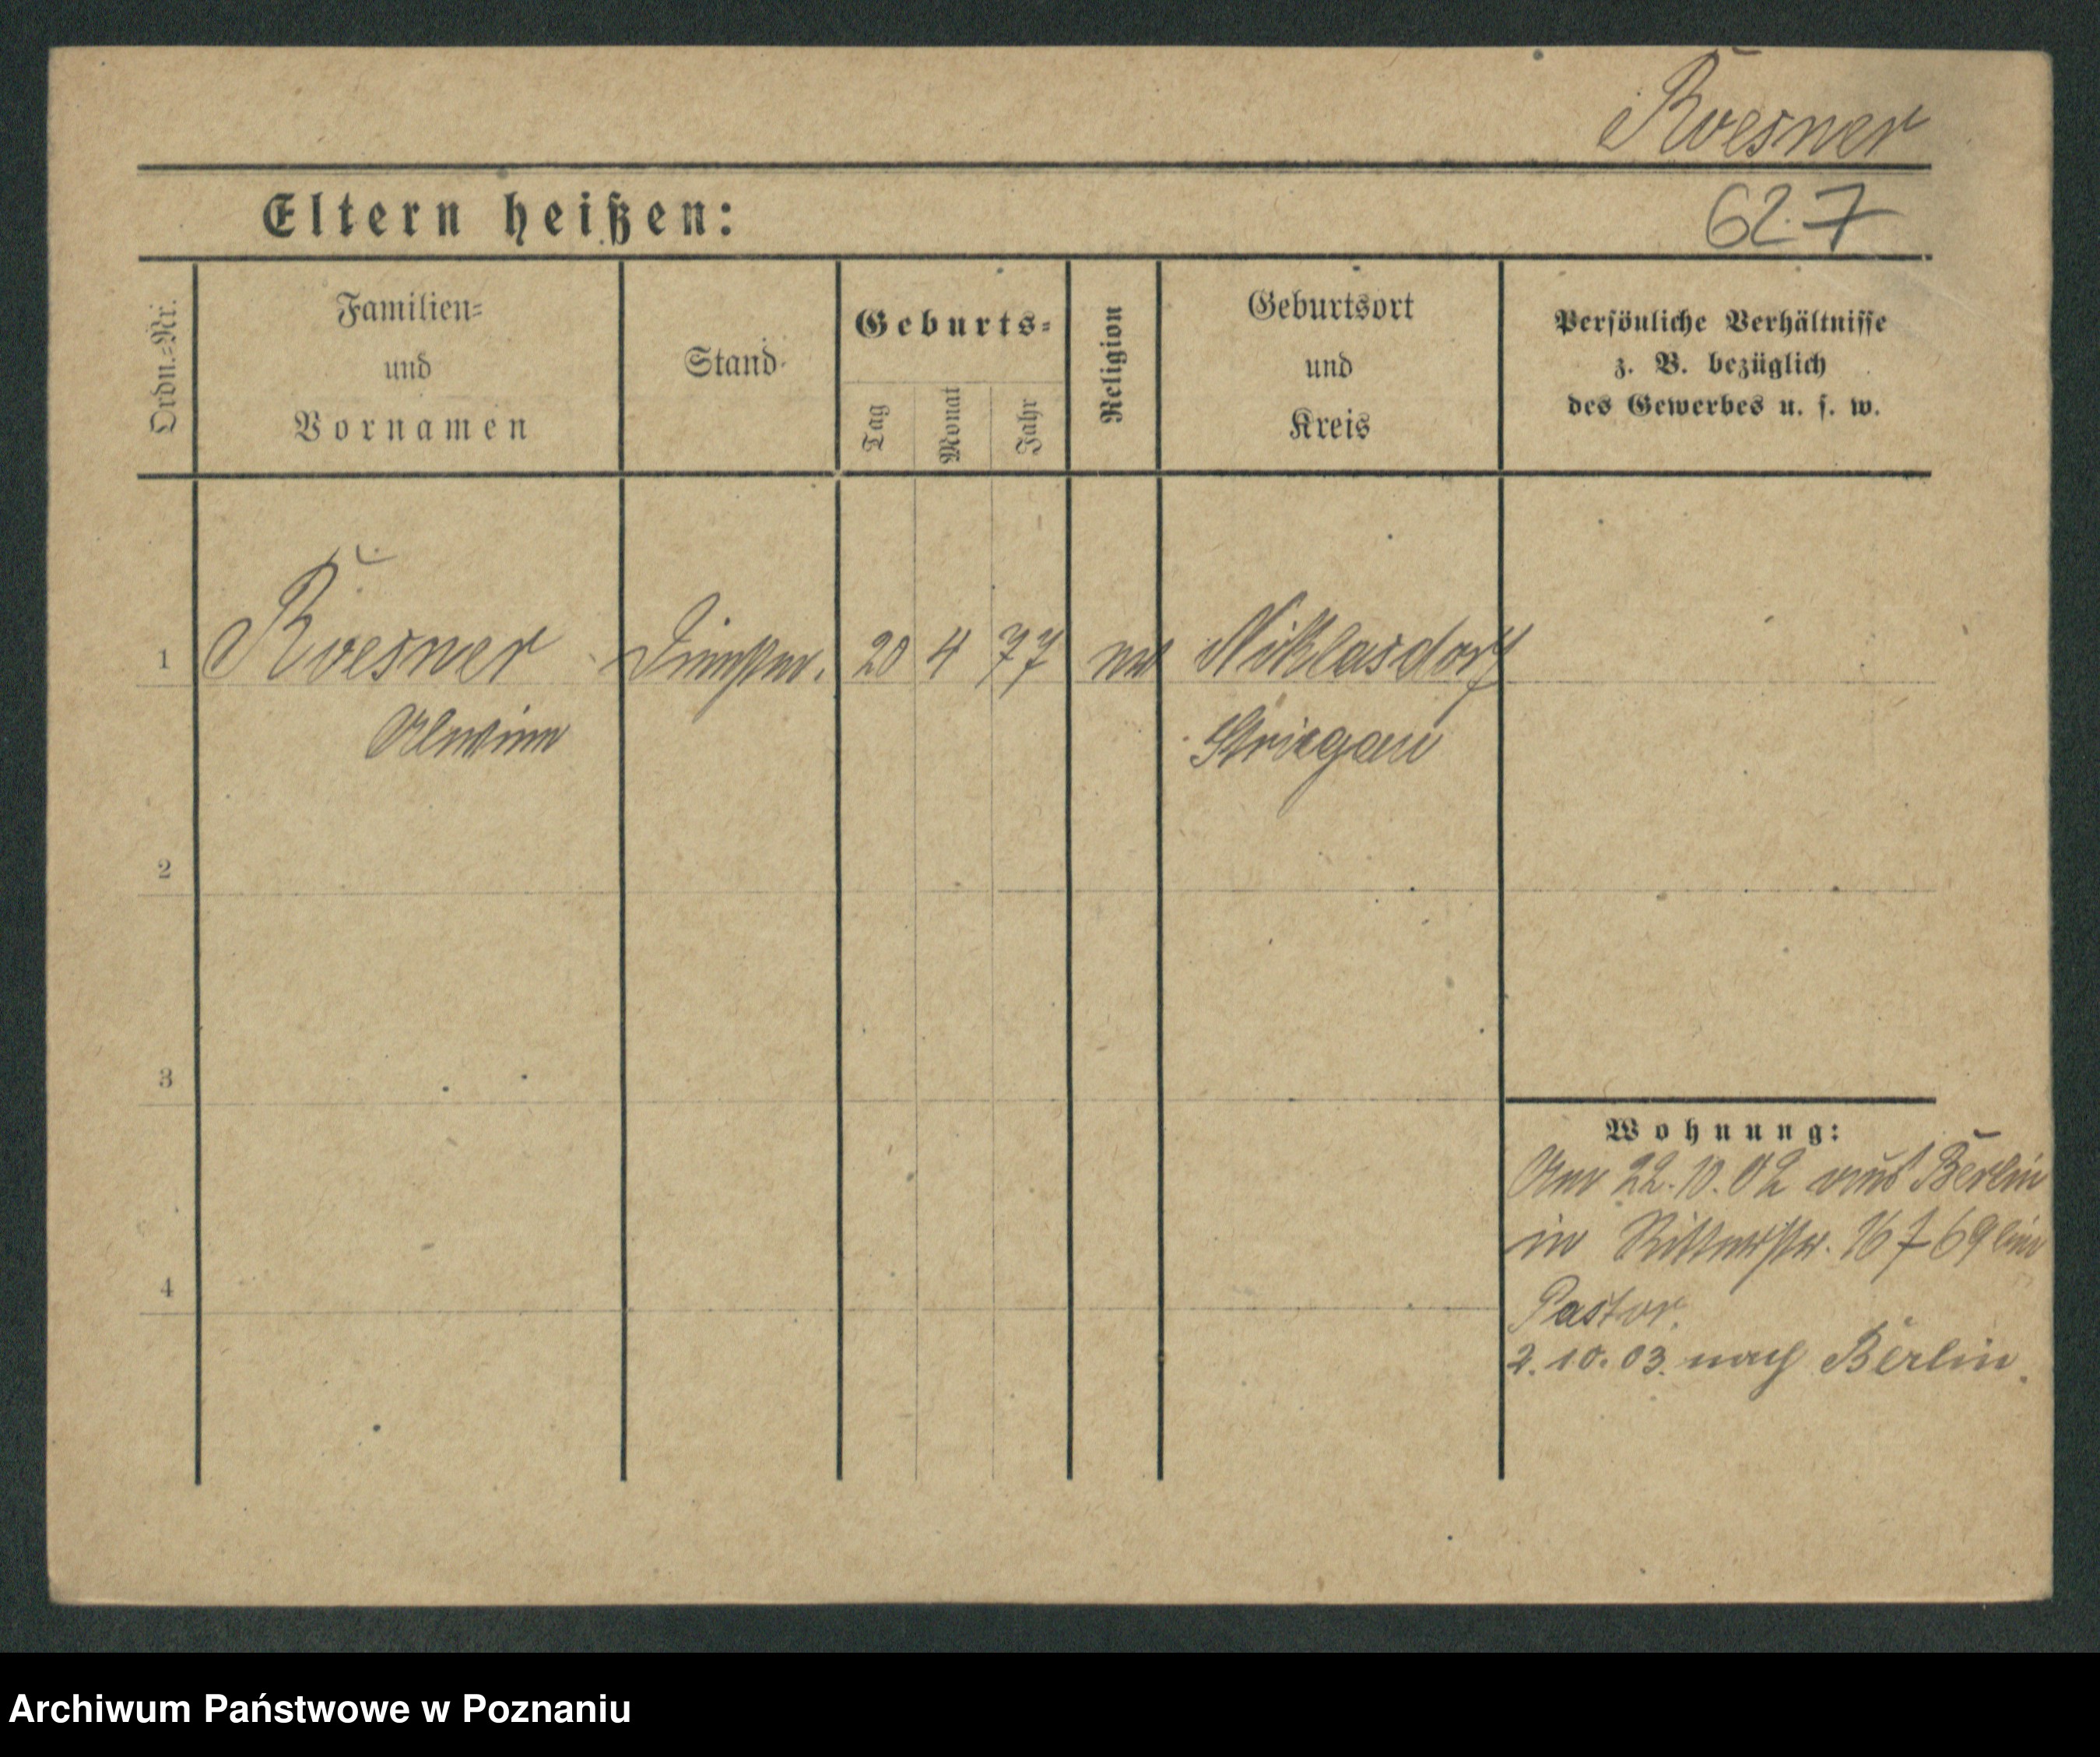 Roesner
Eltern heißen:
627
Ordn.=Nr.
Familien=
und
Vornamen
Stand
Geburts=
Tag
Monat
Jahr
Religion
Geburtsort
und
Kreis
Persönliche Verhältnisse
z. B. bezüglich
des Gewerbes u. s. w.
1 Roesner 20 4 77 ev Niklasdorf
Striegau
2
3
Wohnung:
Am 22.10.02 aus Berlin
in Ritterstr. 16 bei
4
Pastor.
2.10.03. nach Berlin.
Archiwum Państwowe w Poznaniu